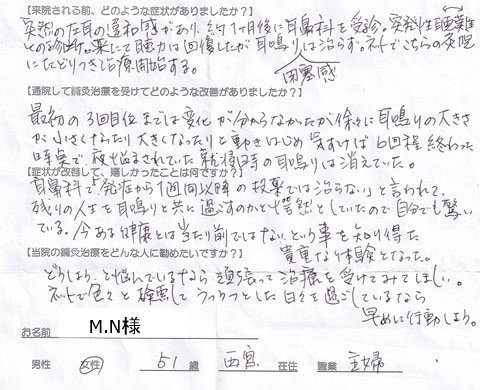 【来院される前、どのような症状がありましたか？】
突然の左耳の違和感があり、約1ヶ月後に耳鼻科を受診。突発性聴難
との診断。薬にて聴力は回復したが耳鳴りは治らず。ネットでこちらの灸院
にたどりつき治療開始する。
閉塞感
【通院して鍼灸治療を受けてどのような改善がありましたか？】
最初の3回目位までは変化が分からなかったが徐々に耳鳴りの大きさ
が小さくなったり大きくなったりと動きはじめ 気すけば6回程 終わった
時点で、夜悩まされていた就寝時の耳鳴りは消えていた。
【症状が改善して、嬉しかったことは何ですか？】
耳鼻科で「発症から1週間以降の投薬では治らない」と言われて、
残りの人生を耳鳴りと共に過ごすのかと愕然としていたので自分でも驚い
ている。今ある健康とは当たり前ではないという事を知り得た
貴重な体験となった。
【当院の鍼灸治療をどんな人に勧めたいですか？】
どうしよう、と悩んでいるなら 頑張って治療を受けてみてほしい。
ネットで色々と検索してうつうつとした日々を過ごしているなら
早めに行動しよう。
お名前 M.N様
男性 女性 51 歳 西宮 在住 職業 主婦